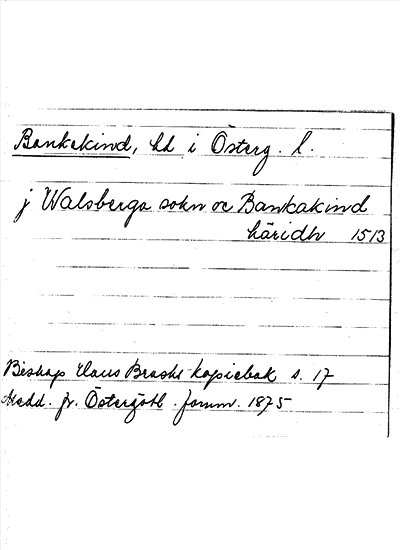 Bankekind, hd i Österg. l.
j Walsberga sokn oc Bankakind
häridh 1513
Biskop Hans Brasks kopiebok s. 17
Medd. fr. Östergötl. fornm. 1875